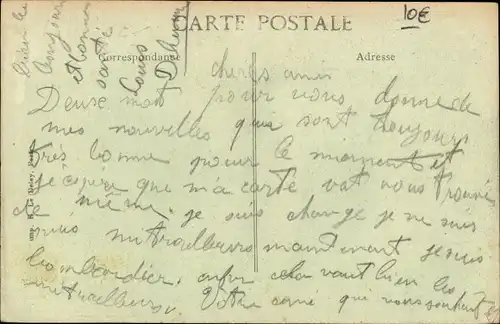 CARTE POSTALE
10€
Correspondance
Adresse
Bien le
bonjour
et bonne
santé
Louis
chers amis
Deuse mot pour vous donne de
mes nouvelles qui sont toujours
très bonne pour le moment et
je espère que ma carte vat vous trouvés
de même. je suis change je ne suis
mitrailleurs maintenant je suis
bombardier, enfin cela vaut bien les
mitrailleurs. Votre ami qui vous souhait